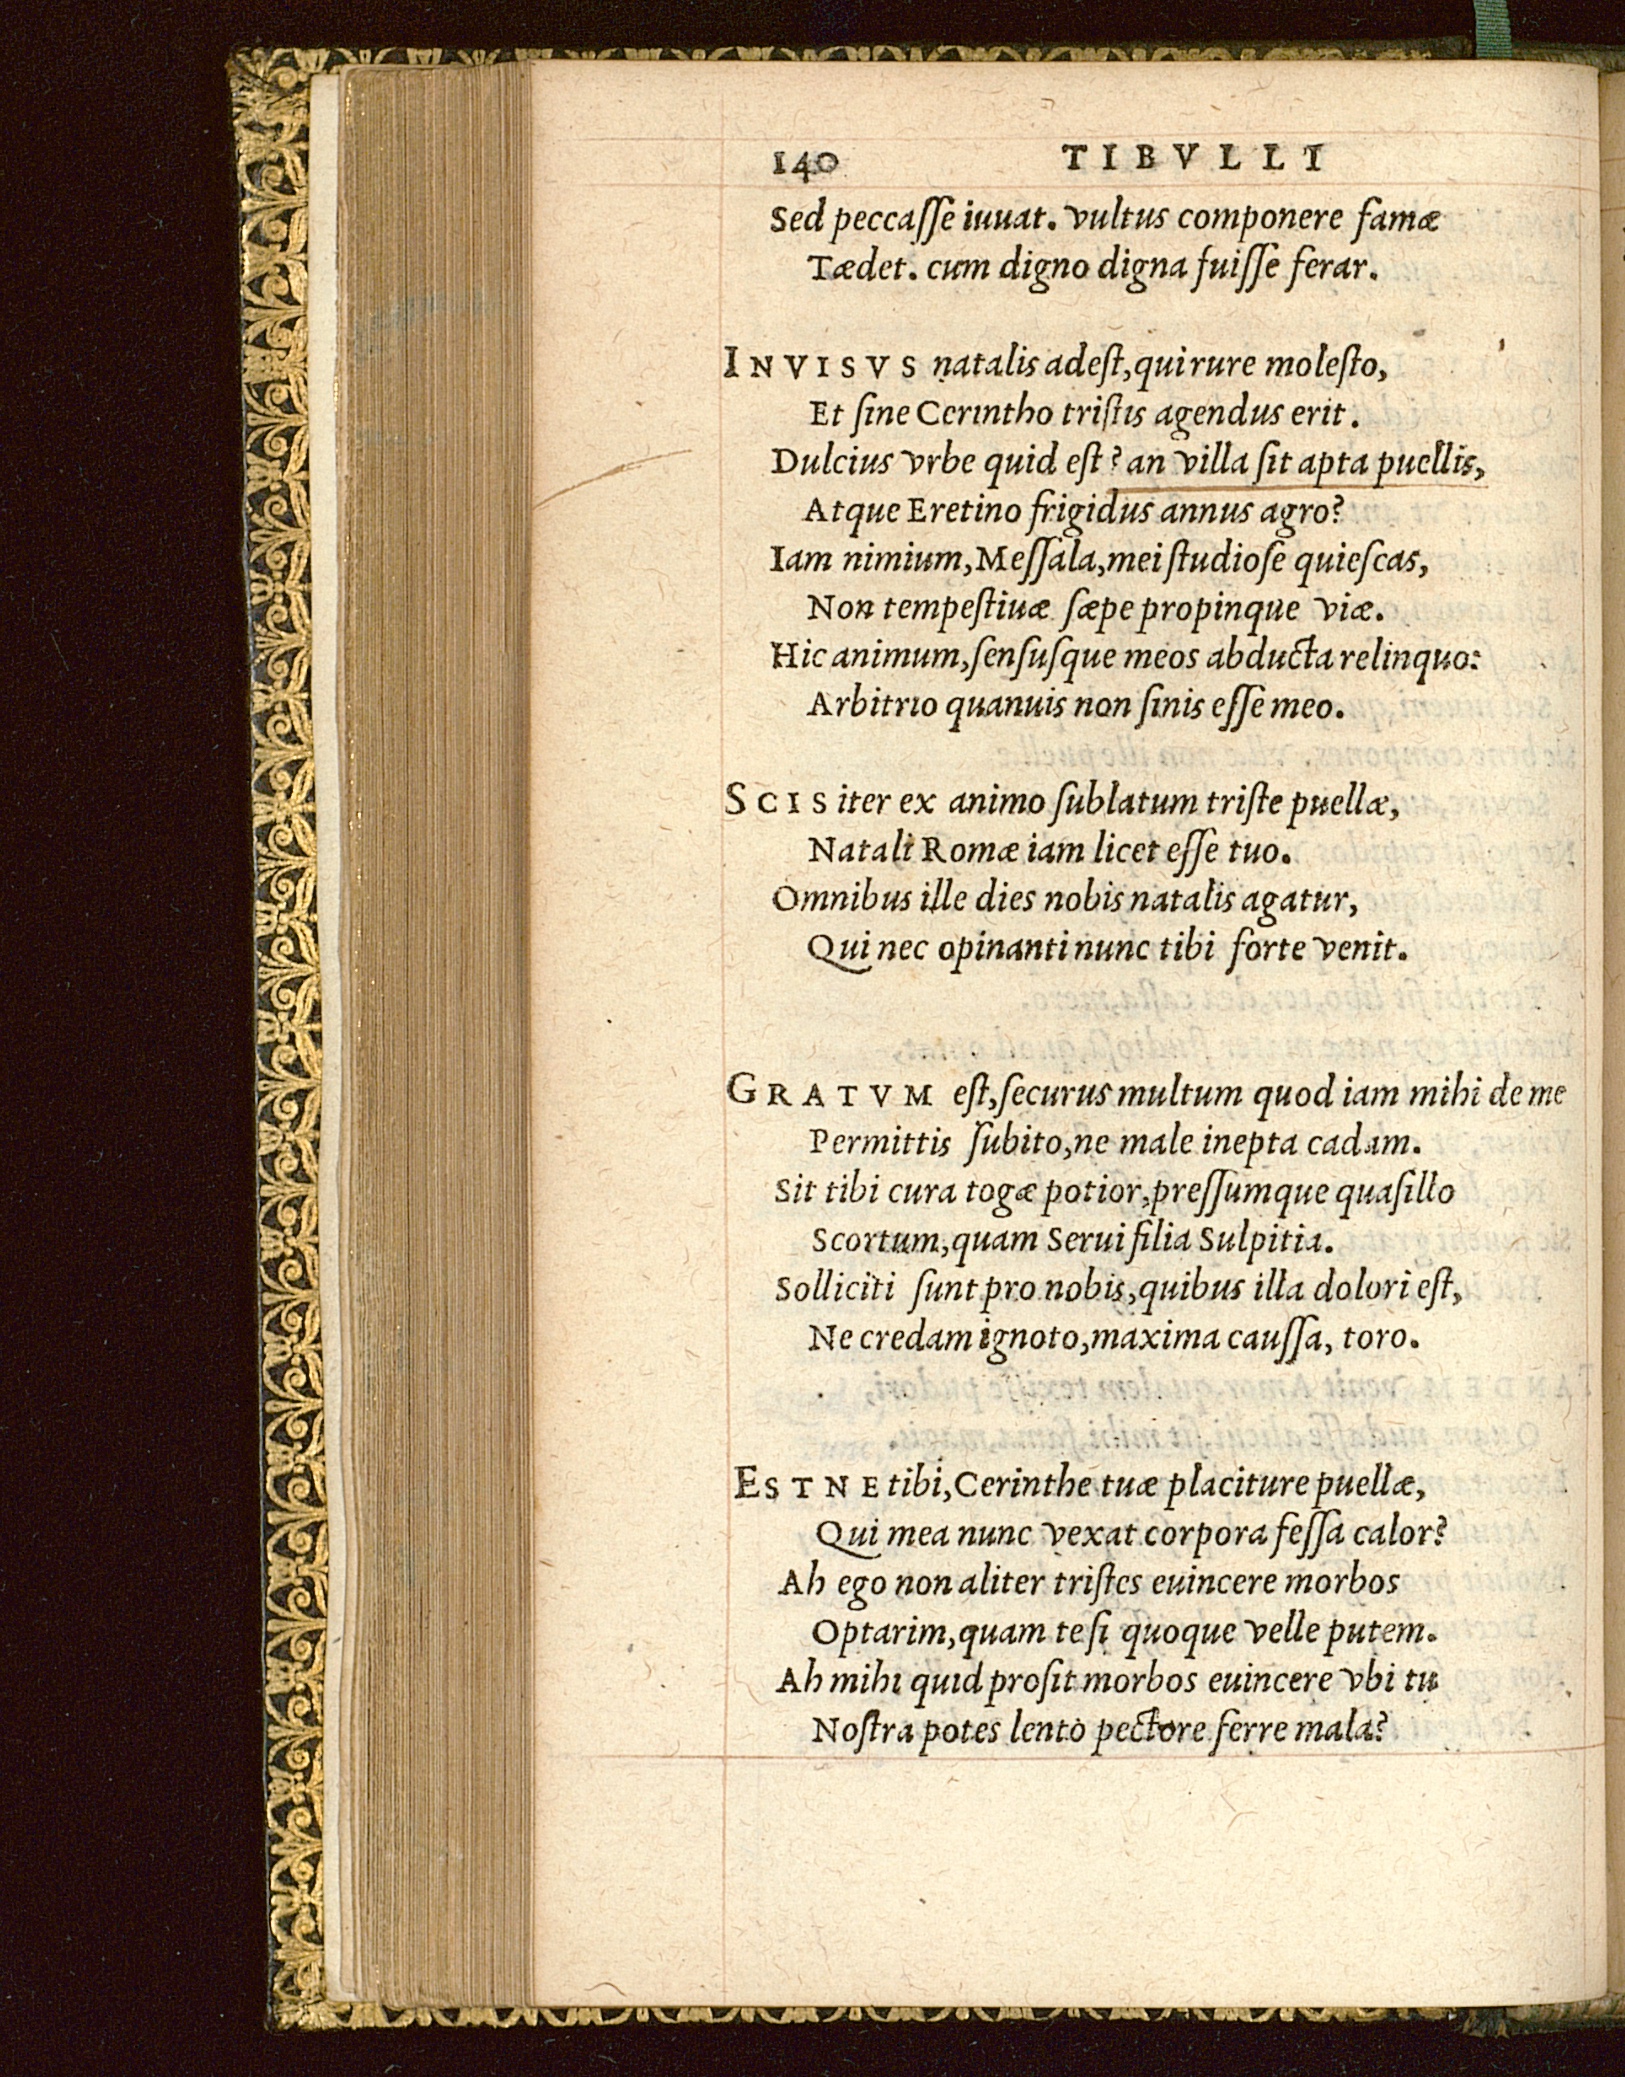 140 TIBVLLI
Sed peccaſſe iuuat. vultus componere famæ
Tædet. cum digno digna fuiſſe ferar.
INVISVS natalis adeſt, qui rure moleſto,
Et ſine Cerintho triſtis agendus erit.
Dulcius vrbe quid eſt? an villa ſit apta puellis,
Atque Eretino frigidus annus agro?
Iam nimium, Meſſala, mei ſtudioſe quieſcas,
Non tempeſtiuæ ſæpe propinque viæ.
Hic animum, ſenſuſque meos abducta relinquo:
Arbitrio quanuis non ſinis eſſe meo.
SCIS iter ex animo ſublatum triſte puellæ,
Natali Romæ iam licet eſſe tuo.
Omnibus ille dies nobis natalis agatur,
Qui nec opinanti nunc tibi forte venit.
GRATVM eſt, ſecurus multum quod iam mihi de me
Permittis ſubito, ne male inepta cadam.
Sit tibi cura togæ potior, preſſumque quaſillo
Scortum, quam Serui filia Sulpitia.
Solliciti ſunt pro nobis, quibus illa dolori eſt,
Ne credam ignoto, maxima cauſſa, toro.
ESTNE tibi, Cerinthe tuæ placiture puellæ,
Qui mea nunc vexat corpora feſſa calor?
Ah ego non aliter triſtes euincere morbos
Optarim, quam te ſi quoque velle putem.
Ah mihi quid proſit morbos euincere vbi tu
Noſtra potes lento pectore ferre mala?